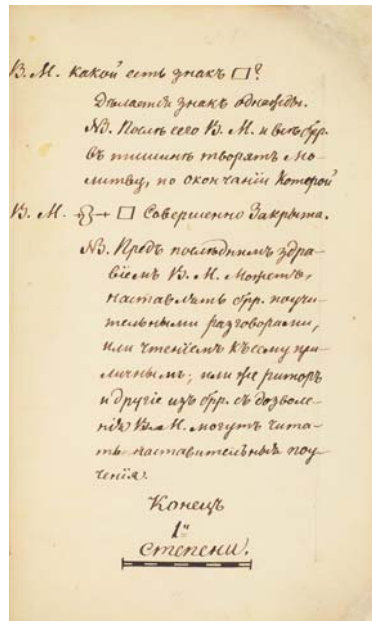 В. М. какой есть знакъ □?
Дѣлается знакъ однажды.
NB. Послѣ сего В. М. и всѣ брр.
въ тишинѣ творятъ мо-
литву, по окончаніи Которой
В. М. □ Совершенно Закрыта.
NB. Предъ послѣднимъ здра-
віемъ В. М. Можетъ,
наставлять брр. поучи-
тельными разговорами,
или чтеніемъ къ сему при-
личнымъ; или же риторъ
и другіе изъ брр. съ дозволе-
нія В. М. могутъ чита-
ть наставительныя поу-
ченія.
Конецъ
1й
степени.